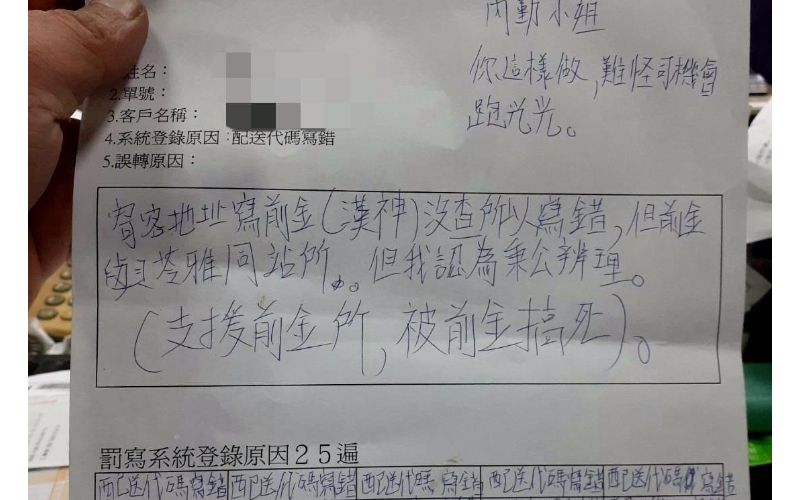 內勤小姐
你這樣做,難怪司機會
跑光光。
姓名：
2.單號：
3.客戶名稱：
4.系統登錄原因：配送代碼寫錯
5.誤轉原因：
寄客地址寫前金(漢神)沒查所以寫錯,但前金
與苓雅同站所。但我認為秉公辨理。
(支援前金所,被前金搞死)。
罰寫系統登錄原因25遍
配送代碼寫錯 配送代碼寫錯 配送代碼寫錯 配送代碼寫錯 配送代碼寫錯